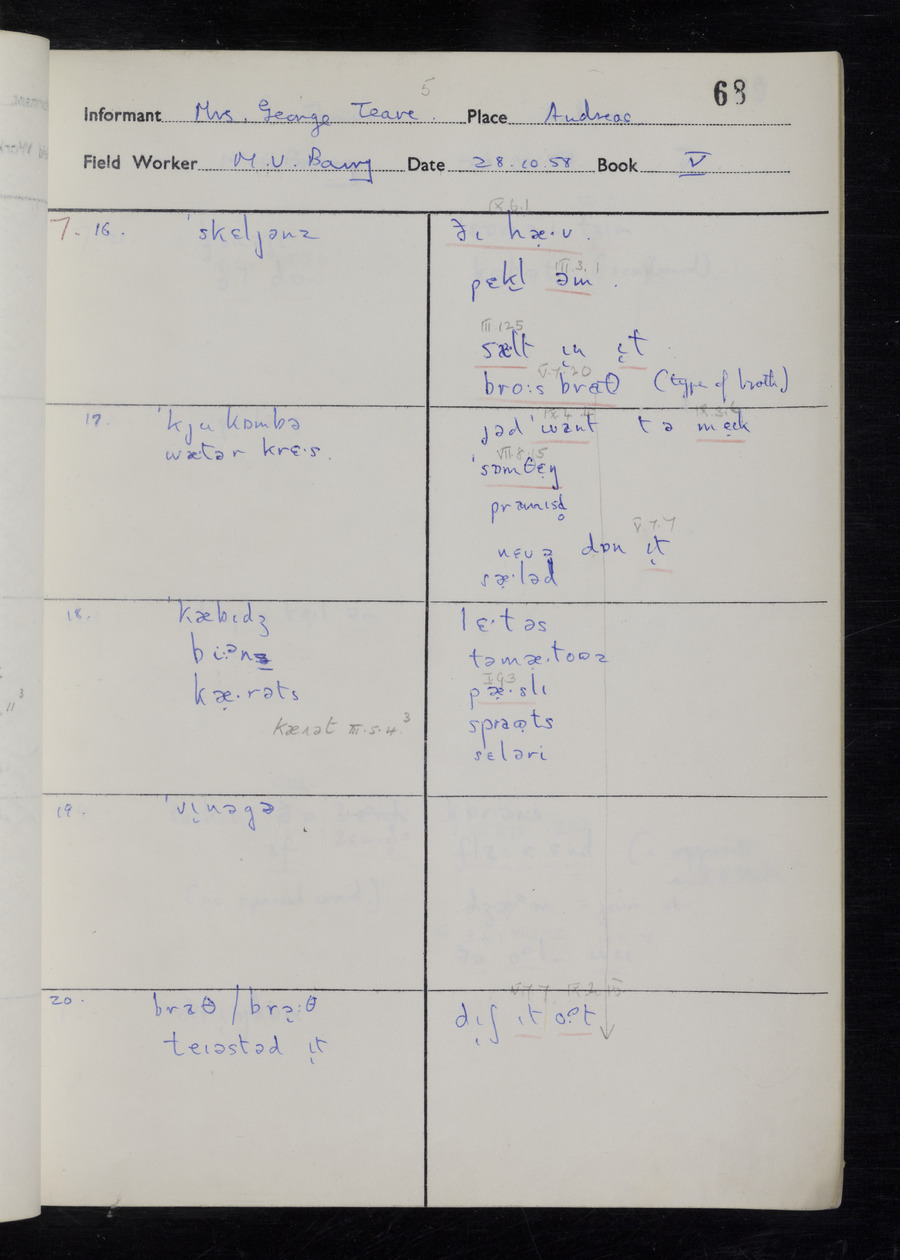 5
68
Informant Mrs. George Teare. Place Andreas
Field Worker M.V. Barry Date 28.10.58 Book V
7. 16. ˈskɛljənz
IX.6.1
ðɪ hæ·v.
pɛkl̩ əm.
III.3.1
III.12.5
sælt ɪn ɪt
V.7.20
bro:s bræθ (type of broth)
17. ˈkjukɒmbə
wætər krɛ·s.
IX.4.4 IX.3.6
jəd ˈwænt tə mɛk
VII.8.15
ˈsɒmθɛŋ
V.7.7
nɛvə dɒn ɪt
sæ·ləd
18. ˈkæbɪdʒ
bi:ᵊnz
kæ̣·rəts
kærət III.5.4.³
lɛ·təs
təmæ·toəz
I.9.3
pæ̣·slɪ
spraʊts
sɛləri
19. ˈvɪnəgə
20. bræθ / brə̣:θ
teɪəstəd ɪt
V.7.7 IX.2.15
dɪʃ ɪt